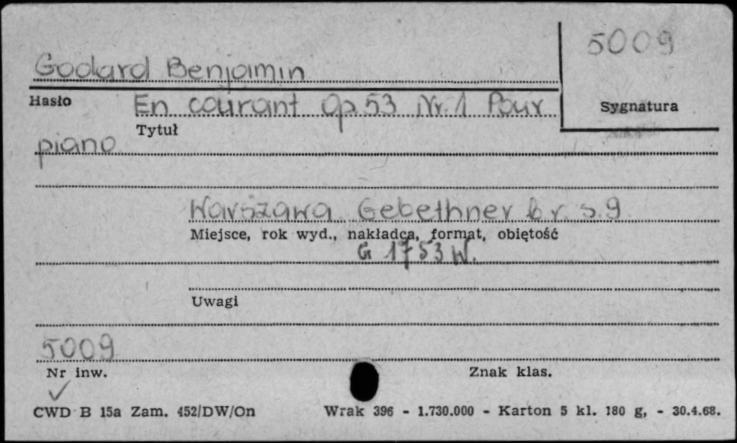 5009
Godard Benjamin
Hasło
En courant Op.53 Nr.1 Pour
Sygnatura
Tytuł
piano
Warszawa Gebethner b.r. s.9
Miejsce, rok wyd., nakładca, format, obiętość
G 1753 W.
Uwagi
5009
Nr inw.
Znak klas.
CWD B 15a Zam. 452/DW/On Wrak 396 - 1.730.000 - Karton 5 kl. 180 g, - 30.4.68.